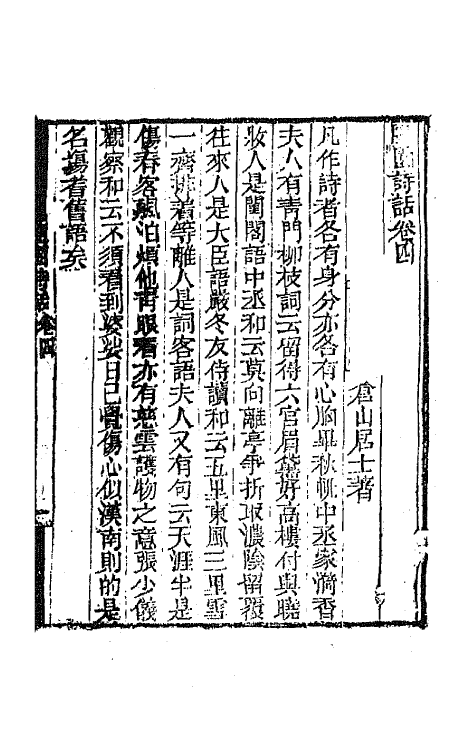 隨園詩話卷四
倉山居士著
凡作詩者各有身分亦各有心胸畢秋帆中丞家漪香
夫人有青門柳枝詞云留得六宮眉黛好高樓付與曉
妝人是閨閣語中丞和云莫向離亭爭折取濃陰留覆
往來人是大臣語嚴冬友侍讀和云五里東風三里雪
一齊排着等離人是詞客語夫人又有句云天涯半是
傷春客飄泊煩他青眼看亦有慈雲護物之意張少儀
觀察和云不須看到婆娑日已覺傷心似漢南則的是
名場耆舊語矣
園詩話卷四